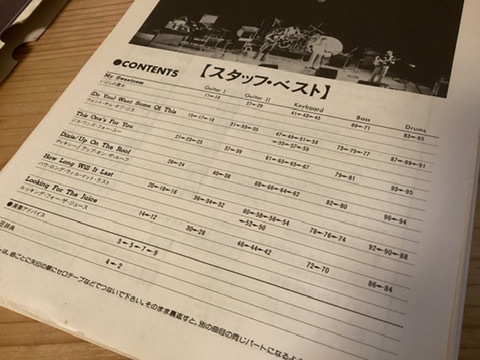 【スタッフ・ベスト】
●CONTENTS
Guitar I Guitar II Keyboard Bass Drums
My Sweetness 11↔13 27↔29 41↔43↔45 69↔71 83↔85
いとしの貴方
(Do You) Want Some Of This 15↔17↔19 31↔33↔35 47↔49↔51↔53 73↔75↔77 87↔89↔91
ウォント・サム・オブ・ジス
This One's For You 37↔39 79↔81 93↔95
ジス・ワンズ・フォー・ユー
Dixie/Up On The Roof 61↔63↔65↔67
ディキシー/アップ・オン・ザ・ルーフ
How Long Will It Last 40↔38 68↔66↔64↔62 82↔80 96↔94
ハウ・ロング・ウィル・イット・ラスト
20↔18↔16 36↔34↔32 60↔58↔56↔54 78↔76↔74 92↔90↔88
↔52↔50
Looking For The Juice 14↔12 30↔28 46↔44↔42 72↔70 86↔84
ルッキング・フォー・ザ・ジュース
●演奏アドバイス 3↔5↔7↔9
4↔2
は、曲ごとに矢印の順にセロテープなどでつないで下さい。そのまま裏返すと、別の曲目の同じパートになるよう